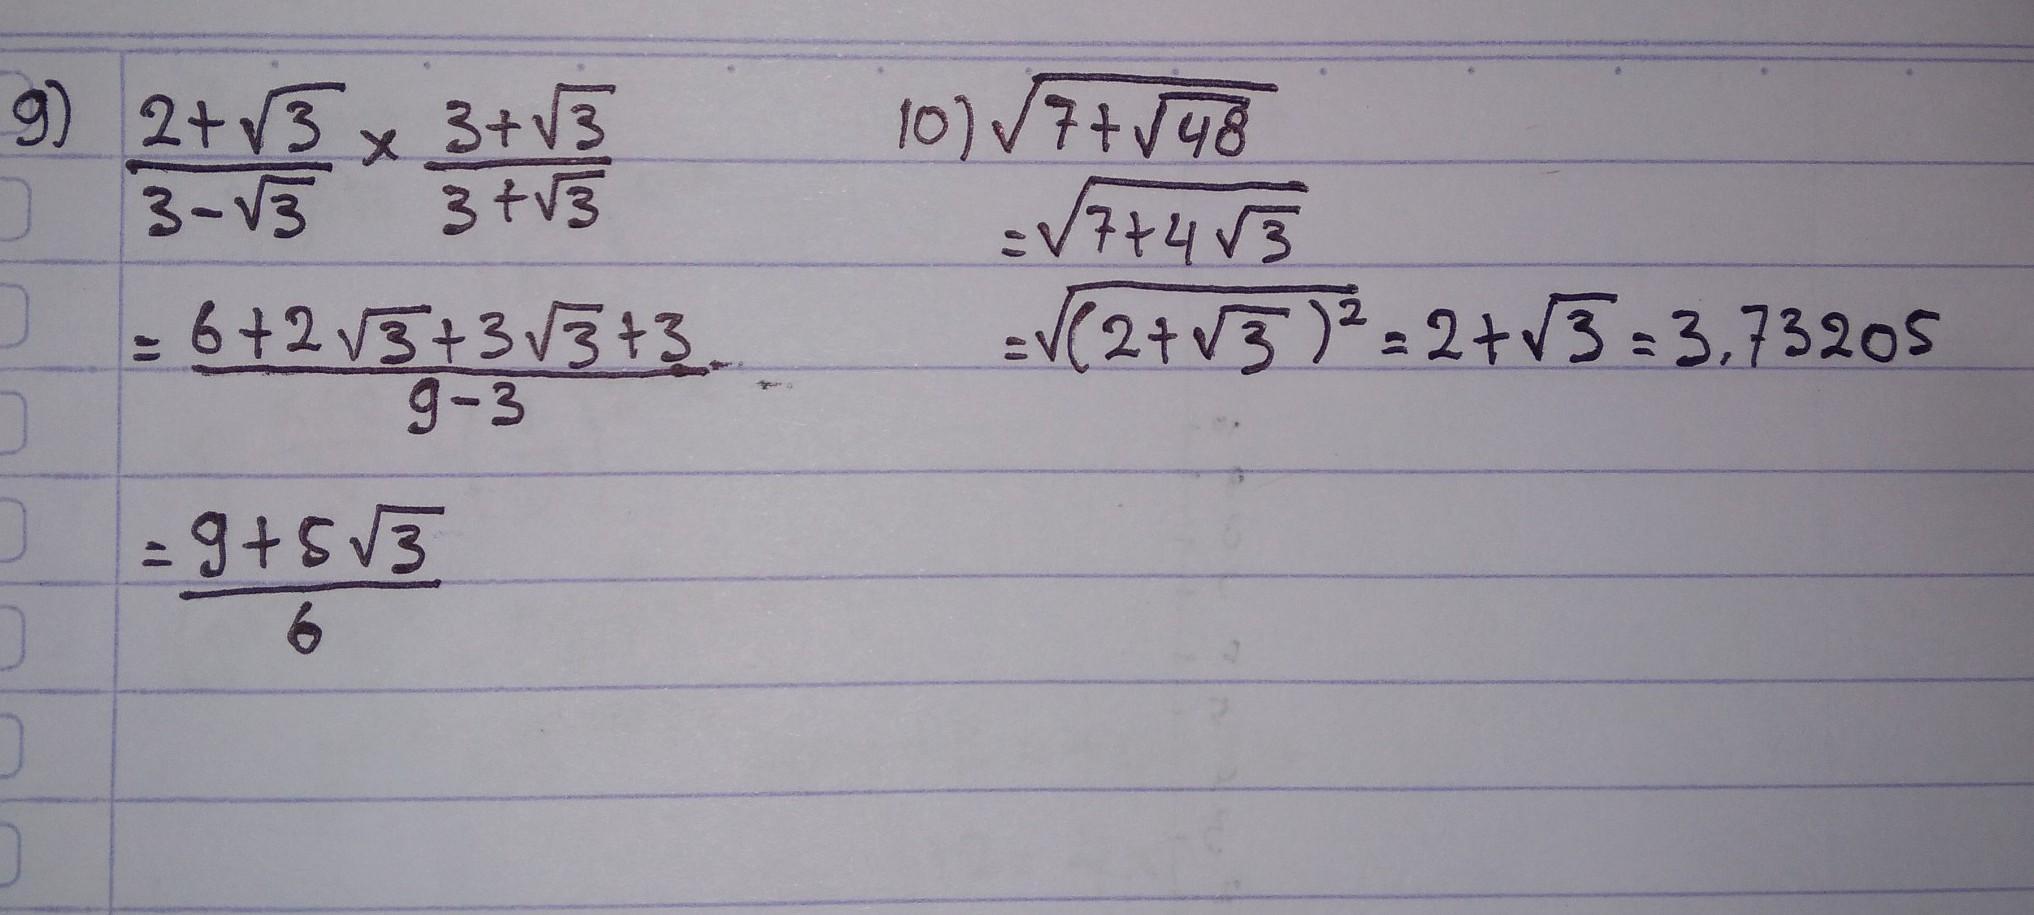 9) (2+√3)/(3-√3) × (3+√3)/(3+√3)
= (6+2√3+3√3+3)/(9-3)
= (9+5√3)/6
10) √(7+√48)
= √(7+4√3)
= √((2+√3)²) = 2+√3 = 3.73205